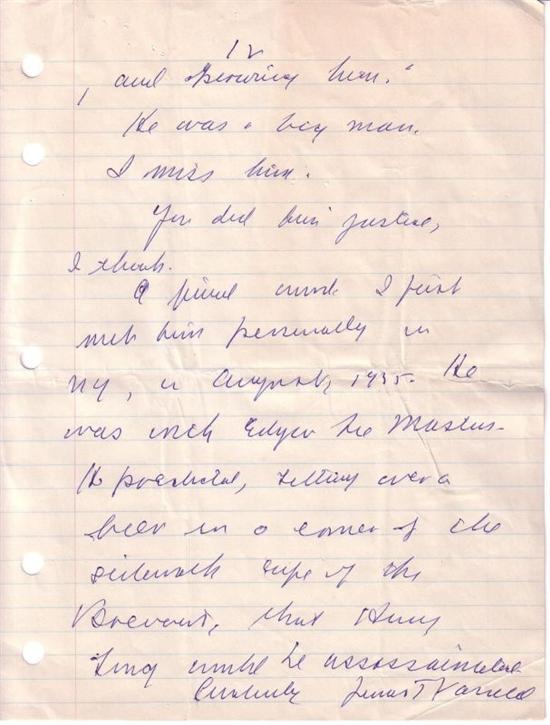 12
, and knowing him."
He was a big man.
I miss him.
You did him justice,
I think.
A final word. I first
met him personally in
NY, in August, 1935. He
was with Edgar Lee Masters.
He predicted, sitting over a
beer in a corner of the
sidewalk cafe of the
Brevoort, that Huey
Long would be assassinated
Cordially James T Farrell